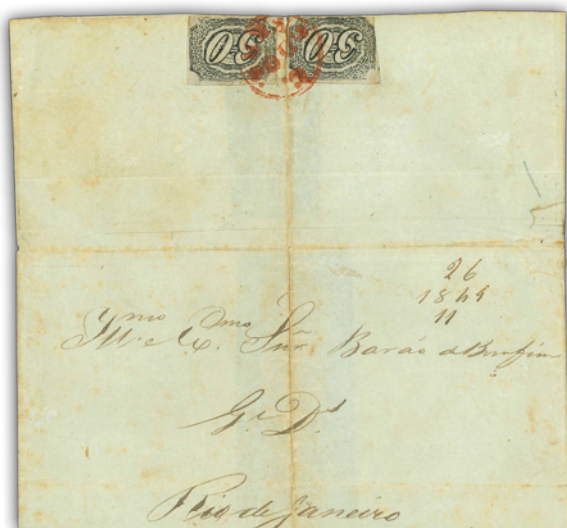 30 30
26
1849
11
Illmo Exmo Snr. Barão d Bomfim
Ge. Ds.
Rio de Janeiro